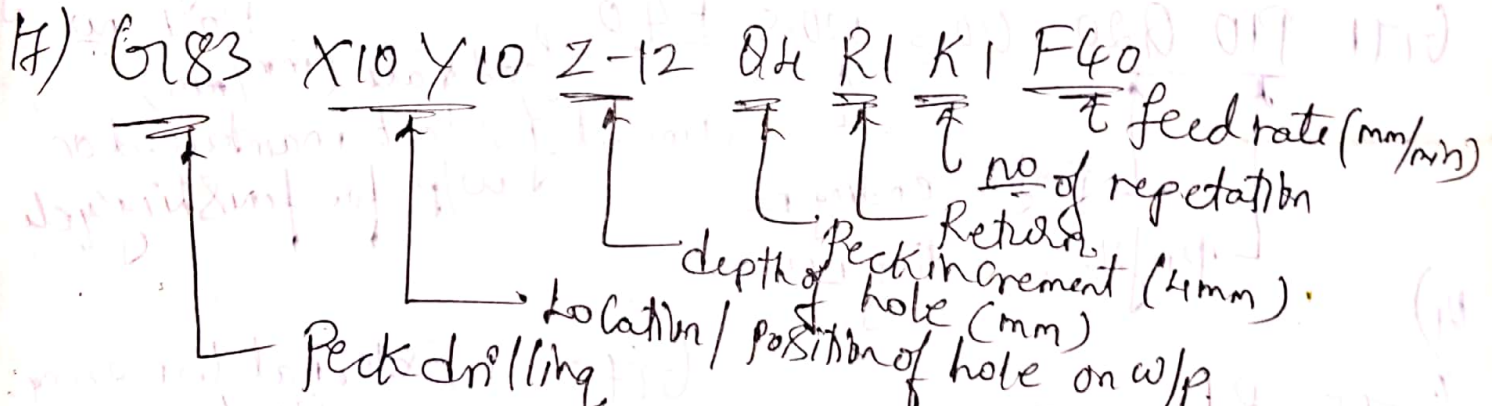 17) G83 X10 Y10 Z-12 Q4 R1 K1 F40
feed rate (mm/min)
no of repetation
Return
Peck increment (4mm).
depth of hole (mm)
Location / position of hole on w/p.
Peck drilling